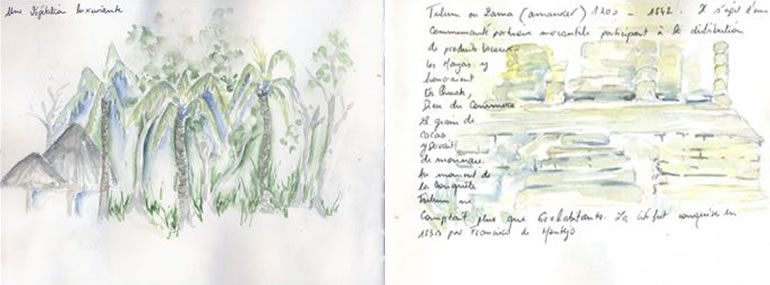 Une végétation luxuriante
Tulum ou Zama (amanecer) 1200 - 1542. Il s'agit d'une
Communauté portuaire mercantile participant à la distribution
de produits locaux.
les Mayas y
honoraient
Ek Chuah,
Dieu du Commerce
Le grain de
cacao
y servait
de monnaie.
Au moment de
la Conquête
Tulum ne
Comptait plus que 600 habitants. La cité fut conquise en
par Francisco de Montejo